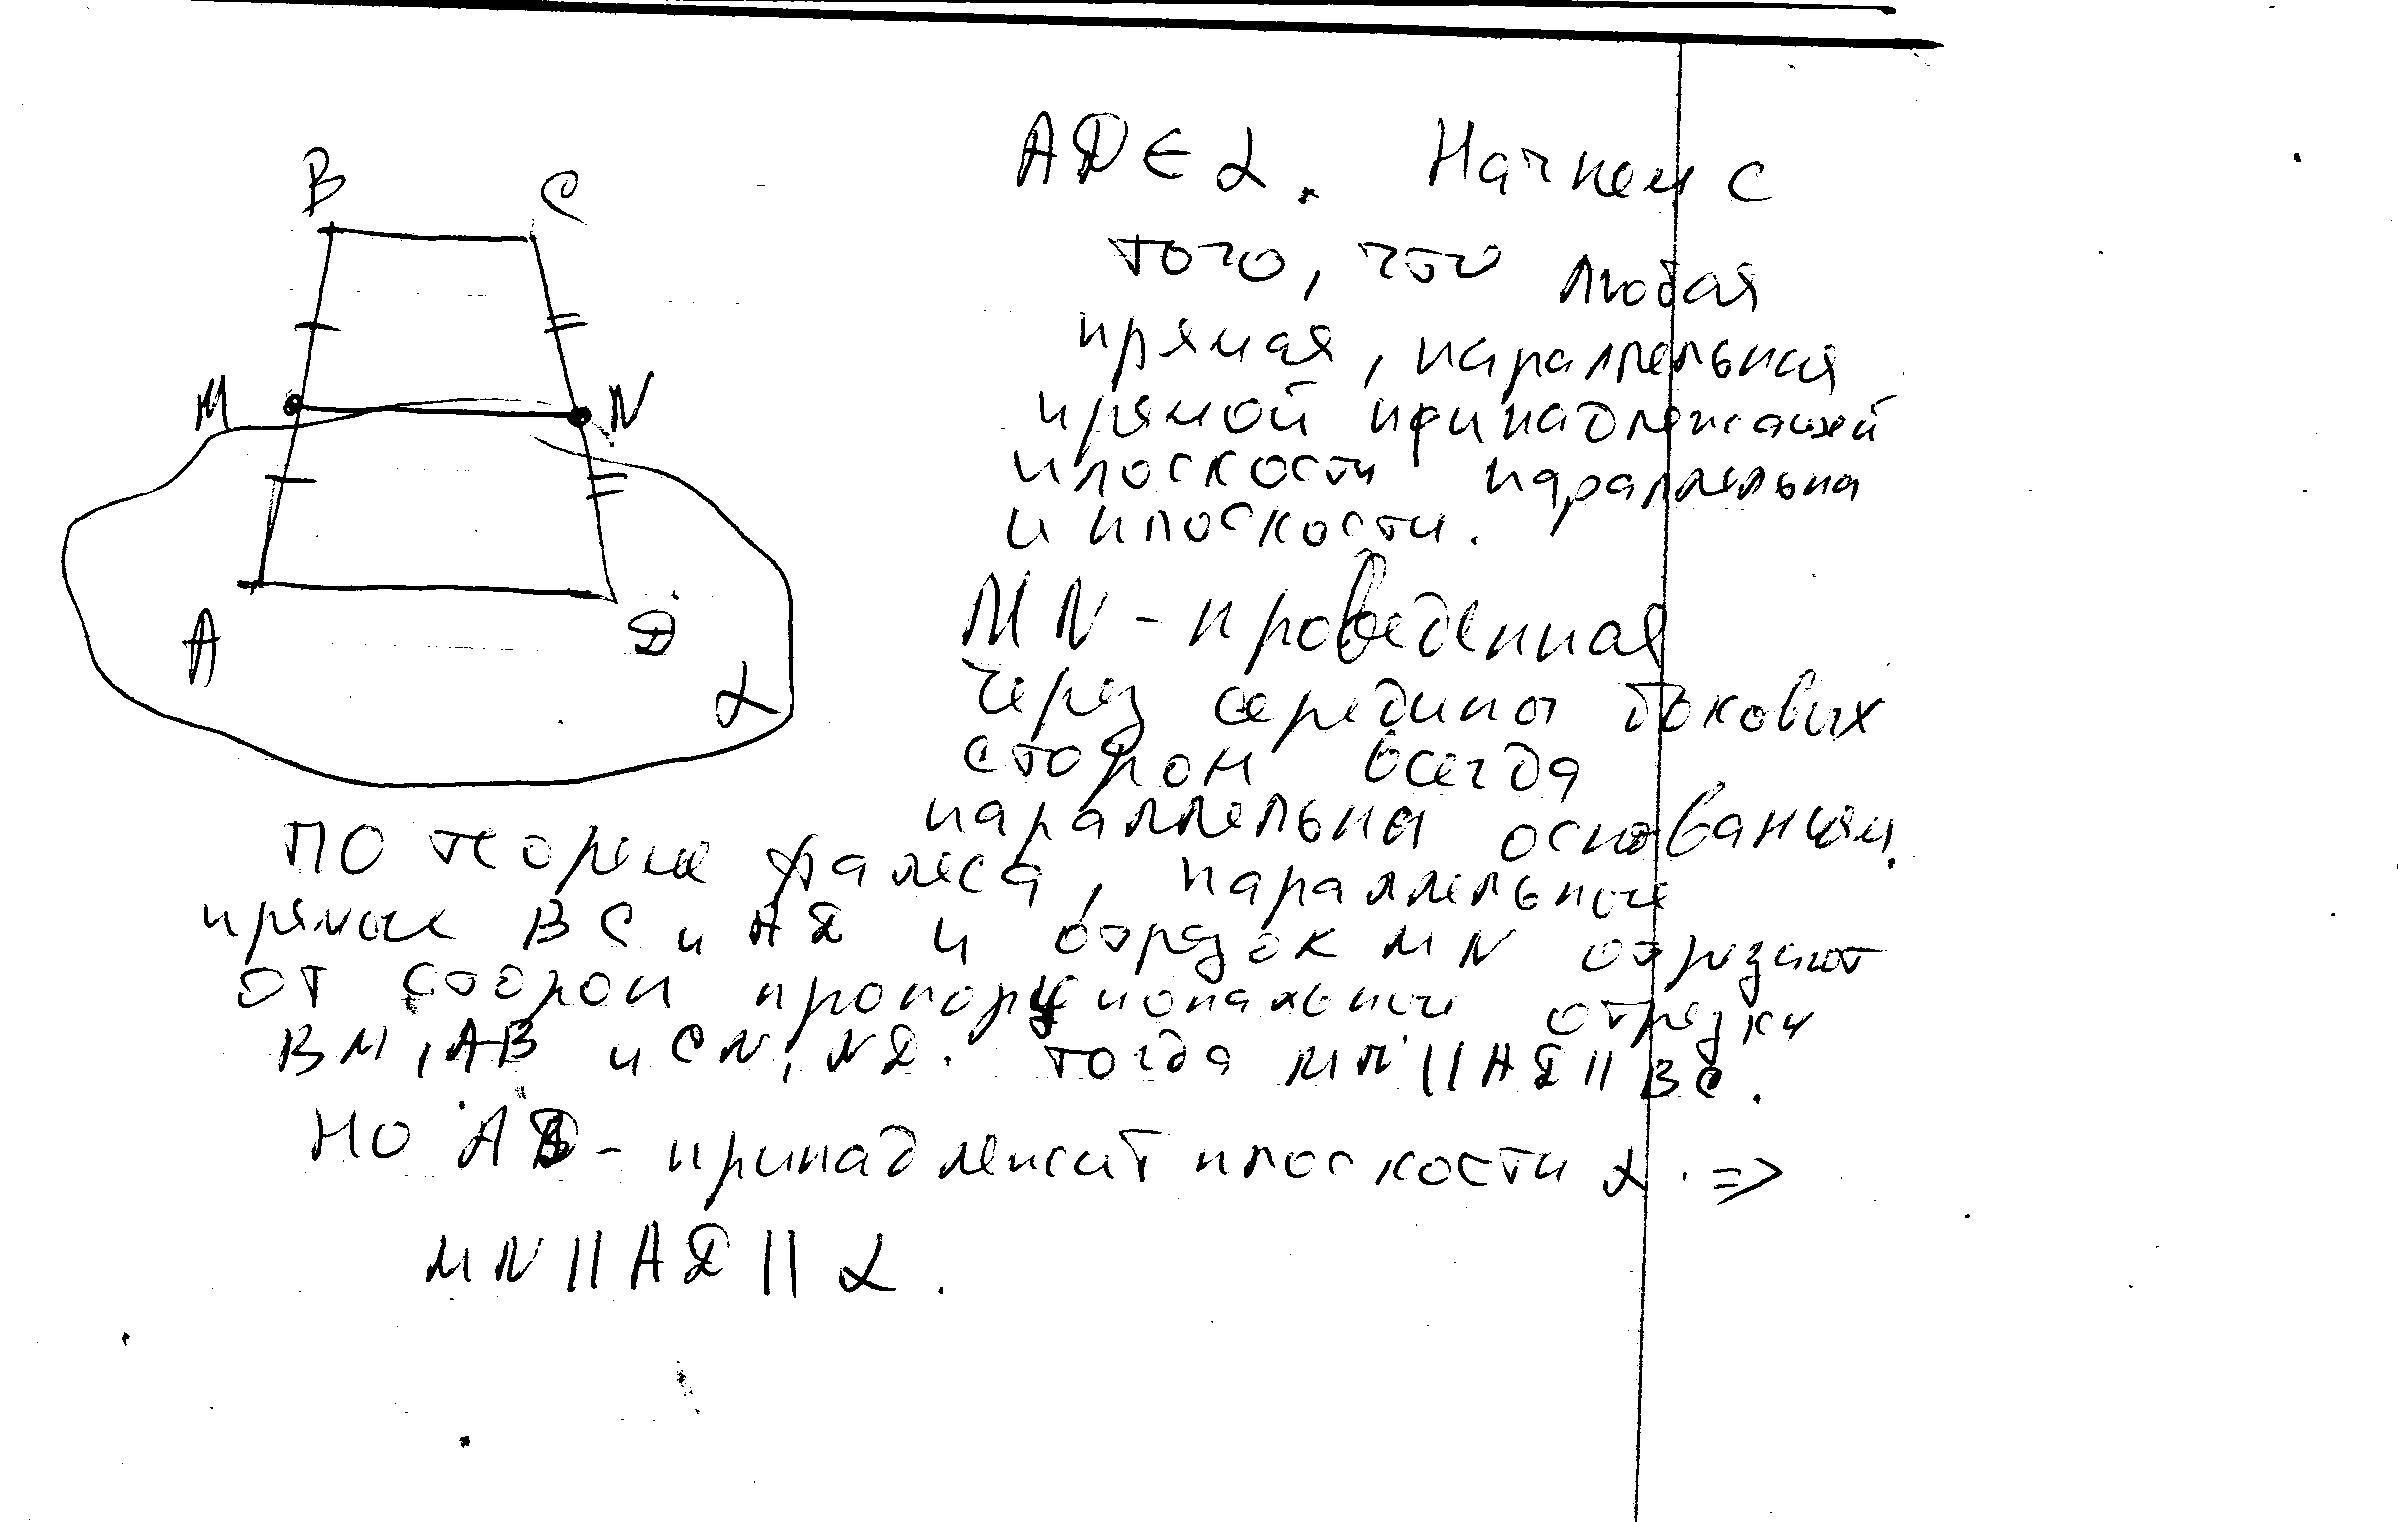 B C
M N
A D
α
AD ∈ α. Начнем с
того, что любая
прямая, параллельная
прямой принадлежащей
плоскости параллельна
и плоскости.
MN - проведенная
через середины боковых
сторон всегда
параллельна основаниям.
По теореме Фалеса, параллельные
прямые BC и AD и отрезок MN отрезают
от сторон пропорциональные отрезки
BM, AB и CN, ND. Тогда MN || AD || BC.
Но AD - принадлежит плоскости α. =>
MN || AD || α.